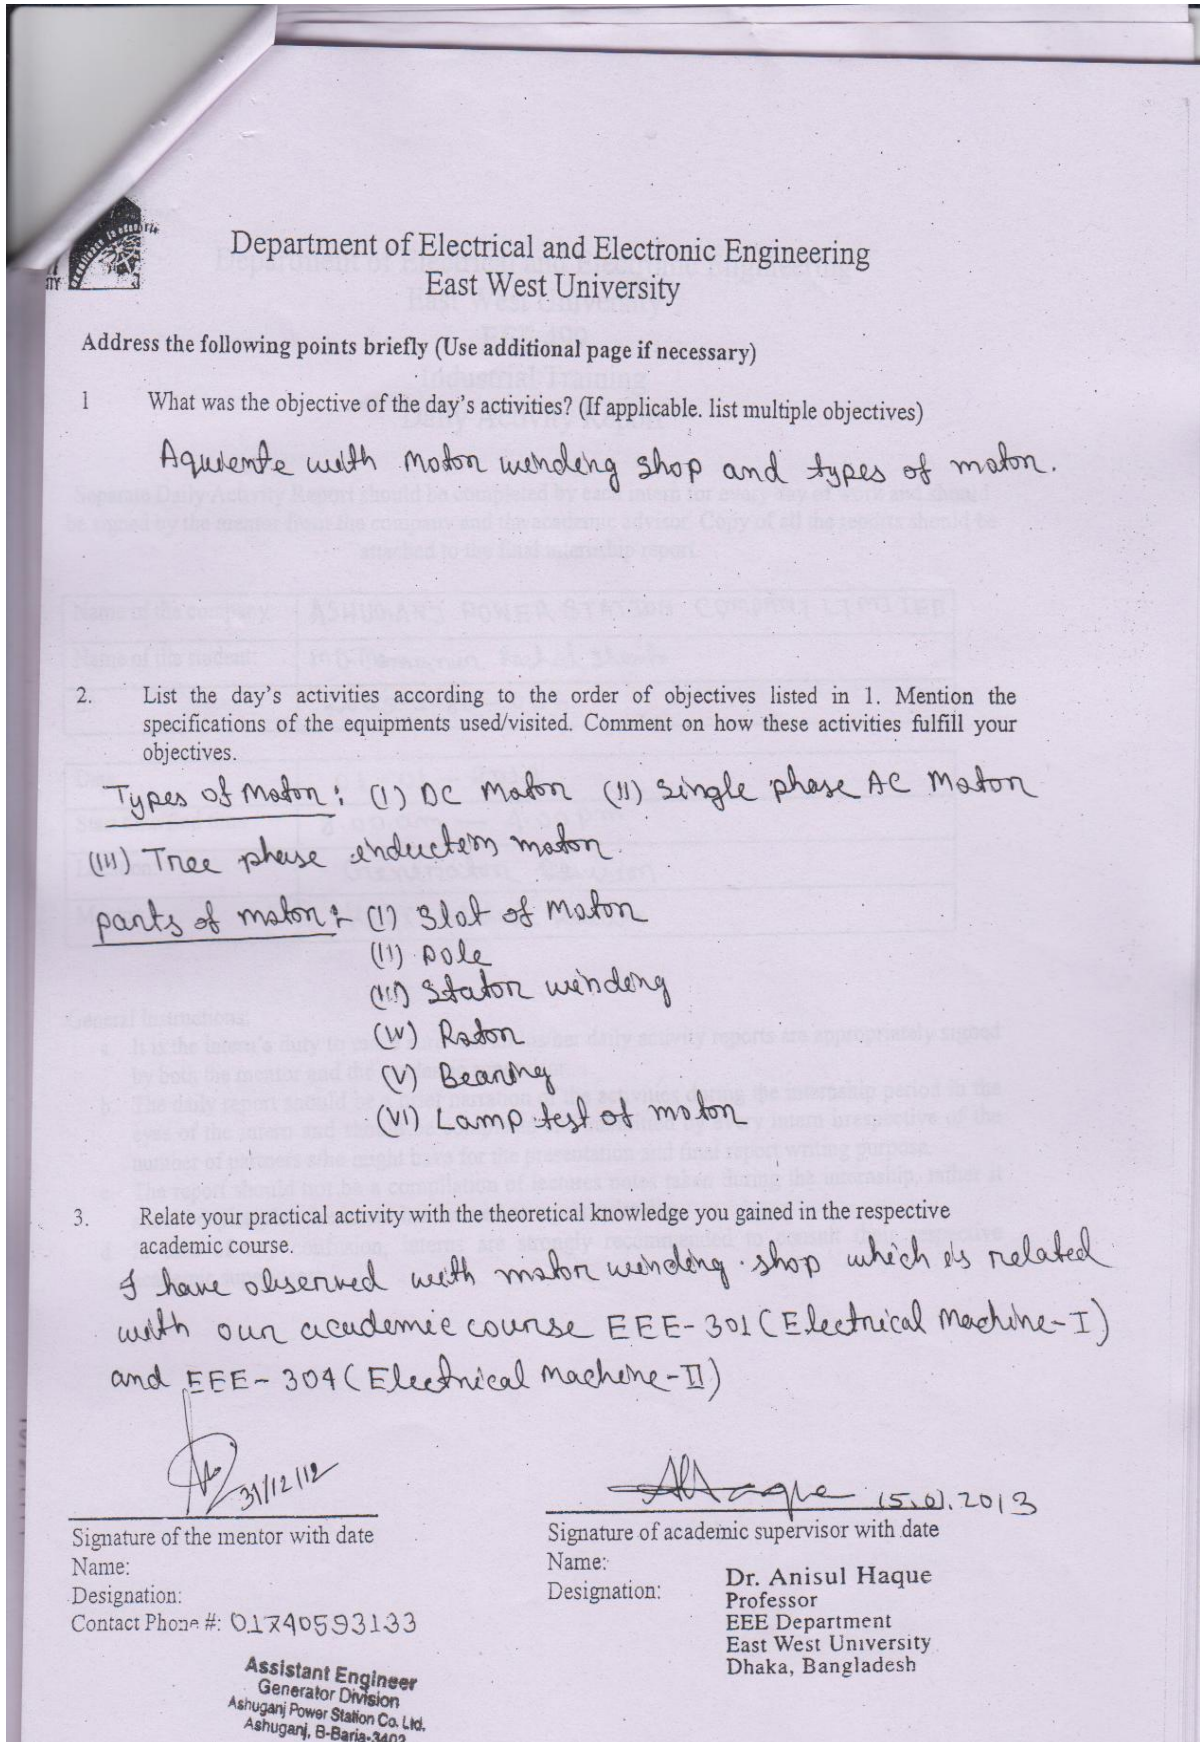 Department of Electrical and Electronic Engineering
East West University
Address the following points briefly (Use additional page if necessary)
1 What was the objective of the day's activities? (If applicable. list multiple objectives)
Aquiente with motor winding shop and types of motor.
2. List the day's activities according to the order of objectives listed in 1. Mention the
specifications of the equipments used/visited. Comment on how these activities fulfill your
objectives.
Types of Motor: (I) DC Motor (II) Single phase AC Motor
(III) Tree phase inductein motor
parts of motor: (I) Slot of Motor
(II) Pole
(III) Stator winding
(IV) Rotor
(V) Bearing
(VI) Lamp test of motor
3. Relate your practical activity with the theoretical knowledge you gained in the respective
academic course.
I have observed with motor winding shop which is related
with our academic course EEE-301 (Electrical Machine-I)
and EEE-304 (Electrical Machine-II)
31/12/12
AHaque 15.01.2013
Signature of the mentor with date
Name:
Designation:
Contact Phone #: 01740593133
Signature of academic supervisor with date
Name:
Designation:
Dr. Anisul Haque
Professor
EEE Department
East West University
Dhaka, Bangladesh
Assistant Engineer
Generator Division
Ashuganj Power Station Co. Ltd.
Ashuganj, B-Baria-3402